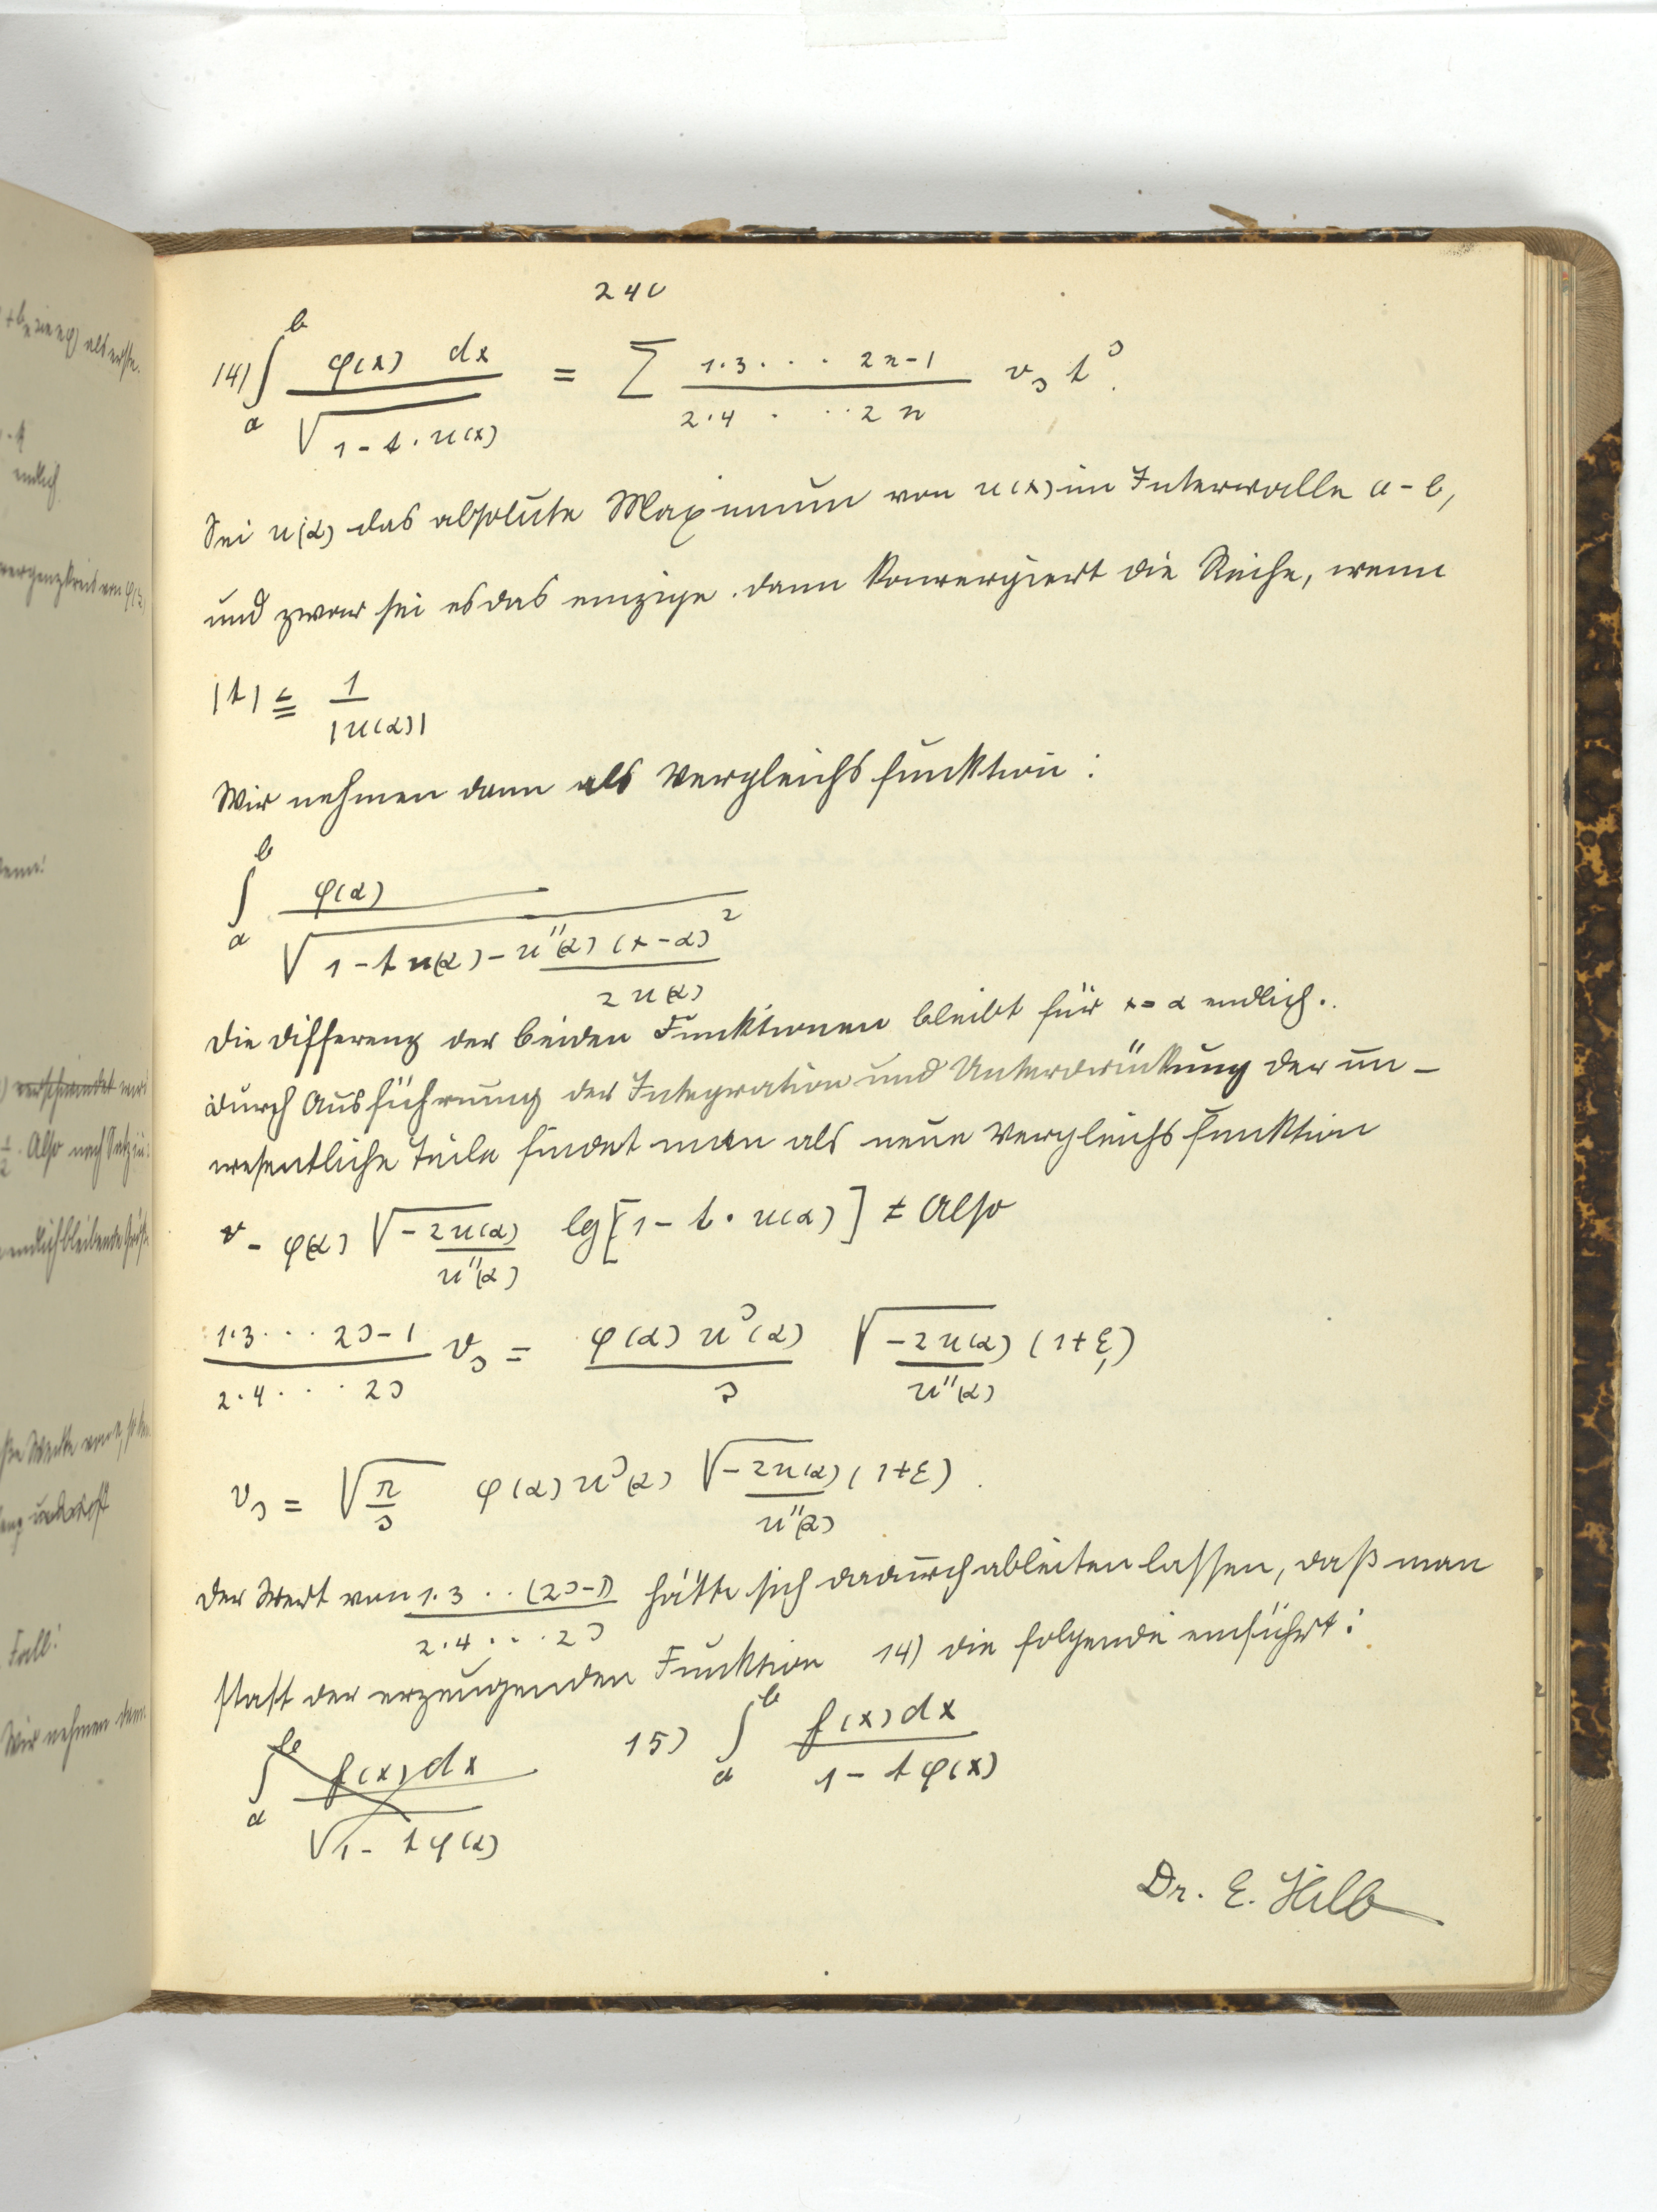 240
14) ∫_a^b φ(x) dx / √(1 - t · u(x)) = Σ (1·3 · · · 2n-1) / (2·4 · · · 2n) v_ν t^ν.
Sei u(α) das absolute Maximum von u(x) im Intervalle a - b,
und zwar sei es das einzige. dann konvergiert die Reihe, wenn
|t| ≦ 1 / |u(α)|
Wir nehmen dann als Vergleichsfunktion:
∫_a^b φ(α) / √(1 - t u(α) - u''(α) (x - α)² / 2 u(α))
Die Differenz der beiden Funktionen bleibt für x = α endlich.
durch Ausführung der Integration und Unterdrückung der un-
wesentliche Teile findet man als neue Vergleichsfunktion
- φ(α) √(-2u(α) / u''(α)) lg [1 - t · u(α)] Also
(1·3 · · · 2ν-1) / (2·4 · · · 2ν) v_ν = φ(α) u^ν(α) / ν √(-2u(α) / u''(α)) (1 + ε_1)
v_ν = √(π/ν) φ(α) u^ν(α) √(-2u(α) / u''(α)) (1 + ε).
Der Wert von 1·3 · · (2ν-1) / 2·4 · · · 2ν hätte sich dadurch ableiten lassen, daß man
statt der erzeugenden Funktion 14) die folgende einführt:
∫_a^b f(x) dx / √(1 - t φ(x)) 15) ∫_a^b f(x) dx / 1 - t φ(x)
Dr. E. Hilb
+ b_n sin nφ) als erste.
endlich
vergenzkreis von φ(z)
wenn:
verschwindet
1/2. Also nach Satz
endlich bleibende
Fall:
Wir nehmen dann